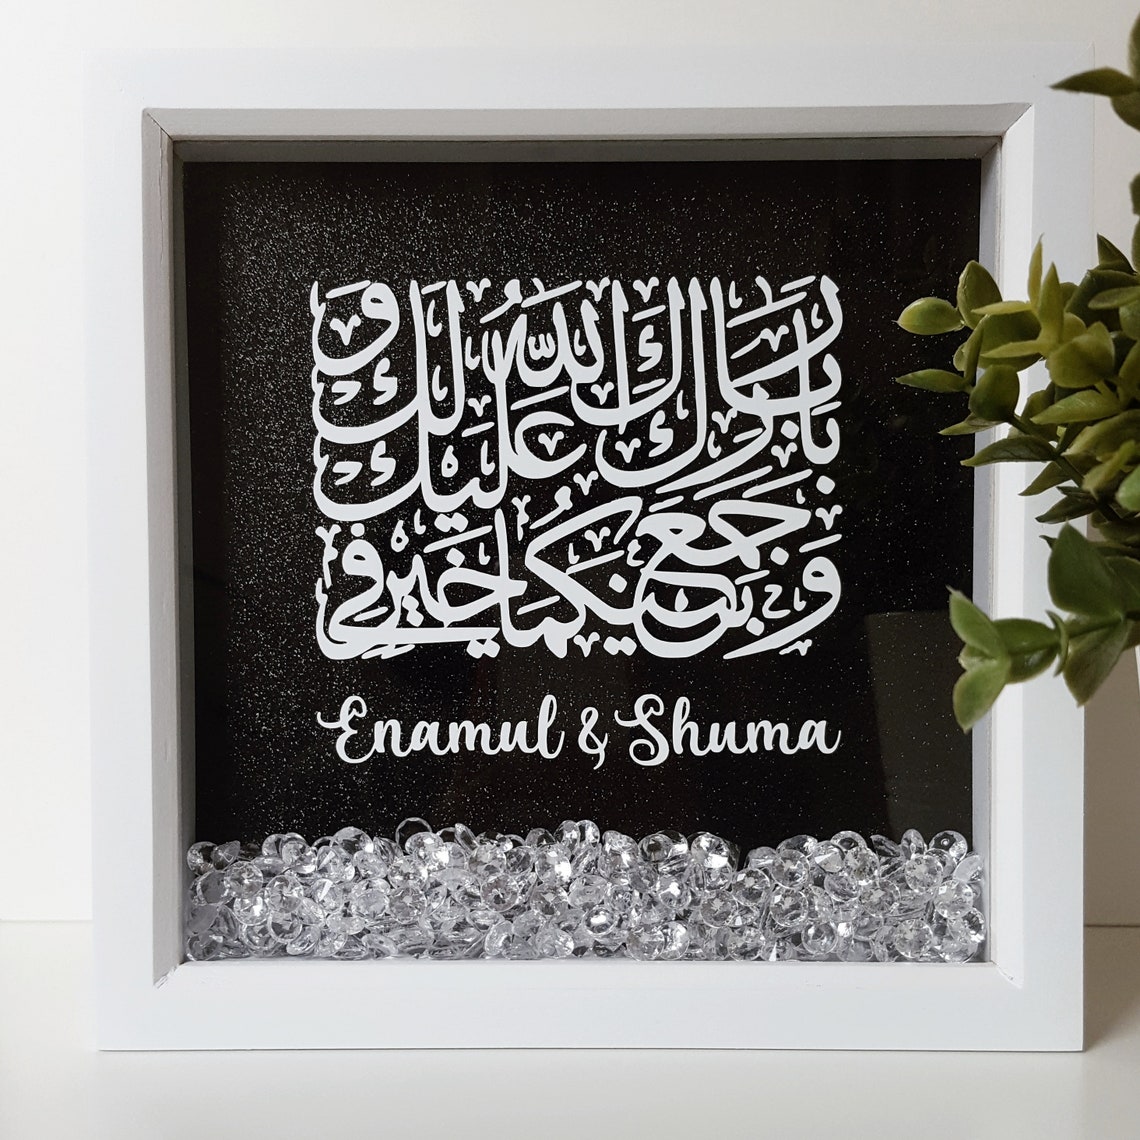 بَارَكَ اللَّهُ لَكَ وَ
بَارَكَ عَلَيْكَ
وَ جَمَعَ بَيْنَكُمَا فِي خَيْرٍ
Enamul & Shuma